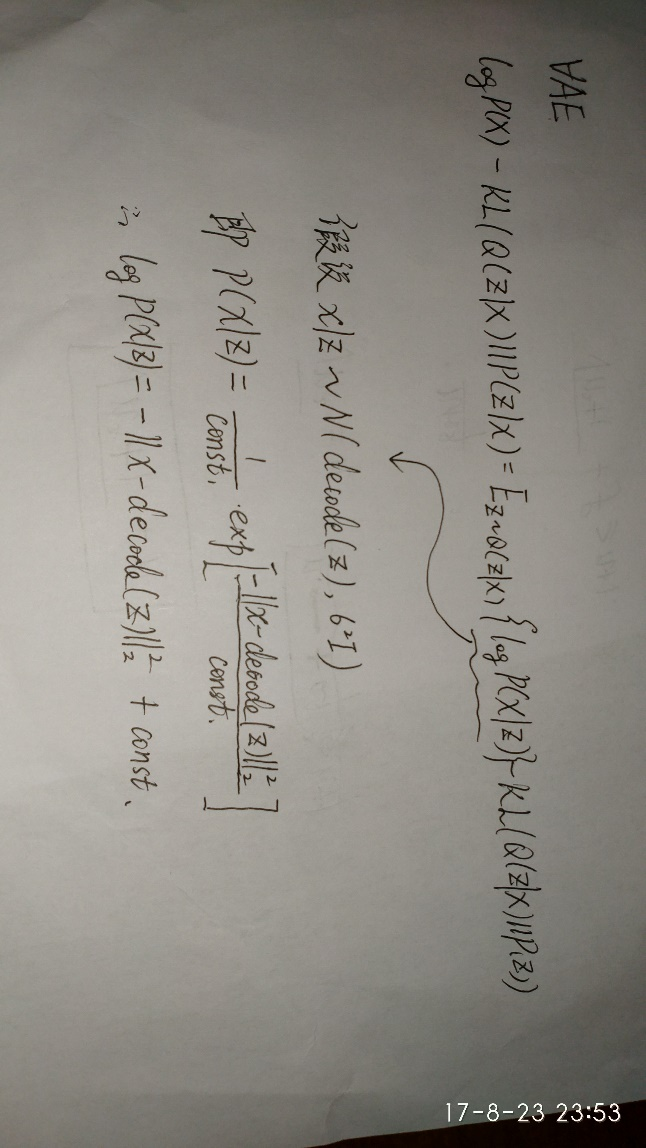 VAE
log P(x) - KL(Q(z|x)||P(z|x) = E_{z~Q(z|x)} {log P(x|z)} - KL(Q(z|x)||P(z))
假设 x|z ~ N(decode(z), σ²I)
即 P(x|z) = 1/const. · exp[-||x-decode(z)||₂²/const.]
∴ log P(x|z) = -||x-decode(z)||₂² + const.
17-8-23 23:53